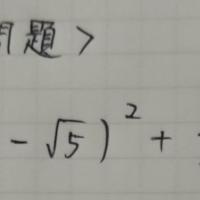 問題>
-√5)² +